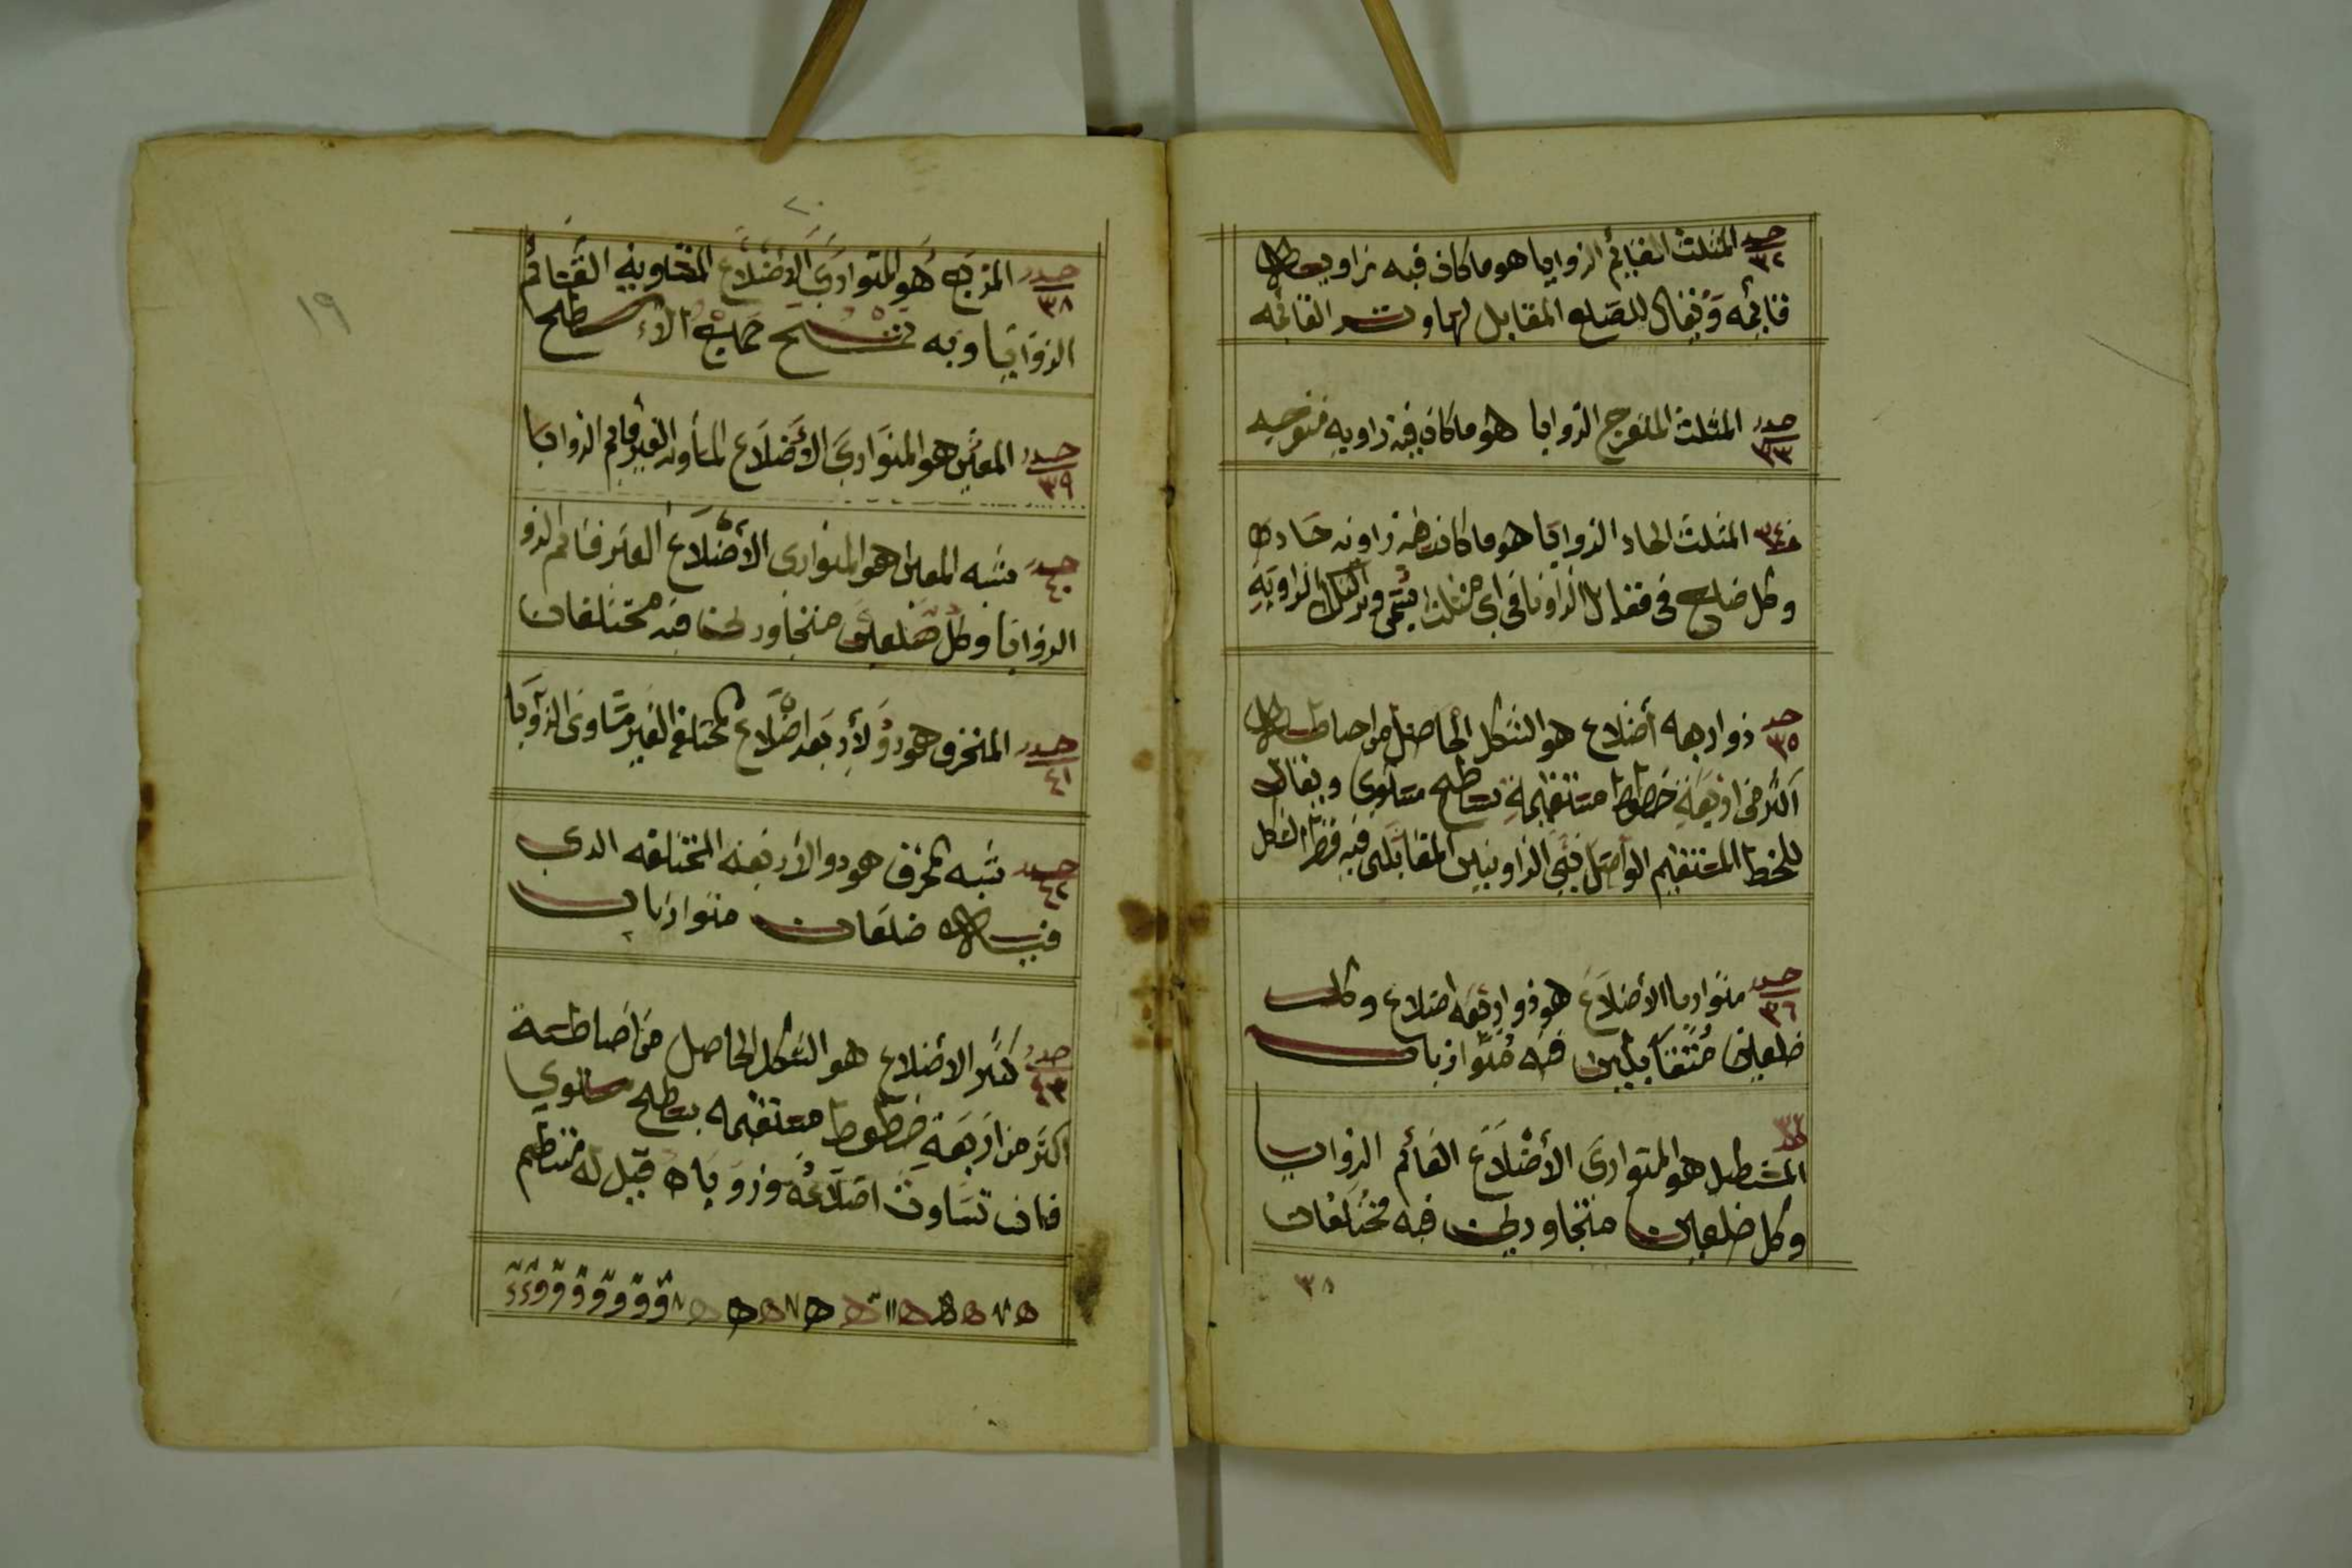 حد ٣٢ المثلث القايم الزوايا هو ما كان فيه زاويه
قائمه وَيقال للضلع المقابل لها وتر القائمه
حد ٣٣ المثلث المنفرج الزوايا هو ما كان فيه زاويه منفرجه
حد ٣٤ المثلث الحاد الزوايا هو ما كانت زاويه حاده
وكل ضلع في الزوايا في اي مثلث الزاويَةِ
حد ٣٥ ذو اربعه أضلاع هو الشكل الحاصل من احاطه
اكثر من اربعَةِ خطوط مستقيمةِ بسطح مستوى ويقال
للخط المستقيم الواصل بَين الزاويتين المتقابلتى فيه قطر الشكل
حد ٣٦ متوازيا الأضلاع هو ذو اربعَه اضلاع وكل
ضلعين مُتقابلين فيه مُتوازيان
حد ٣٧
المستطيل هو المتوازى الأضْلاَعَ القائم الزوايا
وكل ضلعين متجاورين فيه مختلفان
٣٨
٢٠
١٩
حد ٣٨ المربّع هُوَ المتوازي الأضلاع المتساويه القائم
الزوايا وبه تمسح جميع الاسطح
حد ٣٩ المعيّن هو المتوازي الأضلاَع المساويه الغير قايم الزوايا
حد ٤٠ شبه المعين هو المتوازى الأضلاَع الغير قايم الزو
الزوايا وكل ضلعين متجاورين فيه مختلفان
حد ٤١ المنحرف هو ذو لأربَعه اضلاع مختلفه الغير متساوى الزوايا
حد ٤٢ شبه المحرف هو ذو الأربعه المختلفه الدي
فيه ضلعان متوازيان
حد ٤٣ كثير الاضلاع هو الشكل الحاصل من احاطة
اكثر من اربَعَةِ خطوط مستقيمه بسطح مستوي
فان تساوت اضلاعُه وزوياه قيل له منتظم